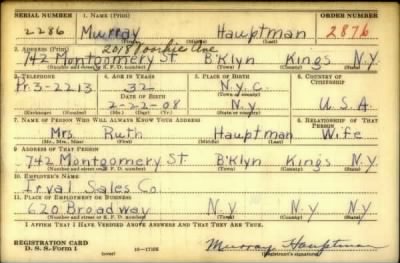 SERIAL NUMBER 1. NAME (Print) ORDER NUMBER
2286 Murray Hauptman 2876
(First) (Middle) (Last)
2. ADDRESS (Print) 2018 Voorhies Ave
742 Montgomery St. B'Klyn Kings N.Y
(Number and street or R. F. D. number) (Town) (County) (State)
3. TELEPHONE 4. AGE IN YEARS 5. PLACE OF BIRTH 6. COUNTRY OF CITIZENSHIP
Pr. 3-2213 32 N.Y.C.
DATE OF BIRTH
2-22-08 N.Y. U.S.A.
(Exchange) (Number) (Mo.) (Day) (Yr.) (State or country)
7. NAME OF PERSON WHO WILL ALWAYS KNOW YOUR ADDRESS 8. RELATIONSHIP OF THAT PERSON
Mrs. Ruth Hauptman Wife
(Mr., Mrs., Miss) (First) (Middle) (Last)
9. ADDRESS OF THAT PERSON
742 Montgomery St. B'Klyn Kings N.Y
(Number and street or R. F. D. number) (Town) (County) (State)
10. EMPLOYER'S NAME
Irval Sales Co.
11. PLACE OF EMPLOYMENT OR BUSINESS
620 Broadway N.Y N.Y N.Y.
(Number and street or R. F. D. number) (Town) (County) (State)
I AFFIRM THAT I HAVE VERIFIED ABOVE ANSWERS AND THAT THEY ARE TRUE.
REGISTRATION CARD
D. S. S. Form 1 (over) Murray Hauptman
(Registrant's signature)